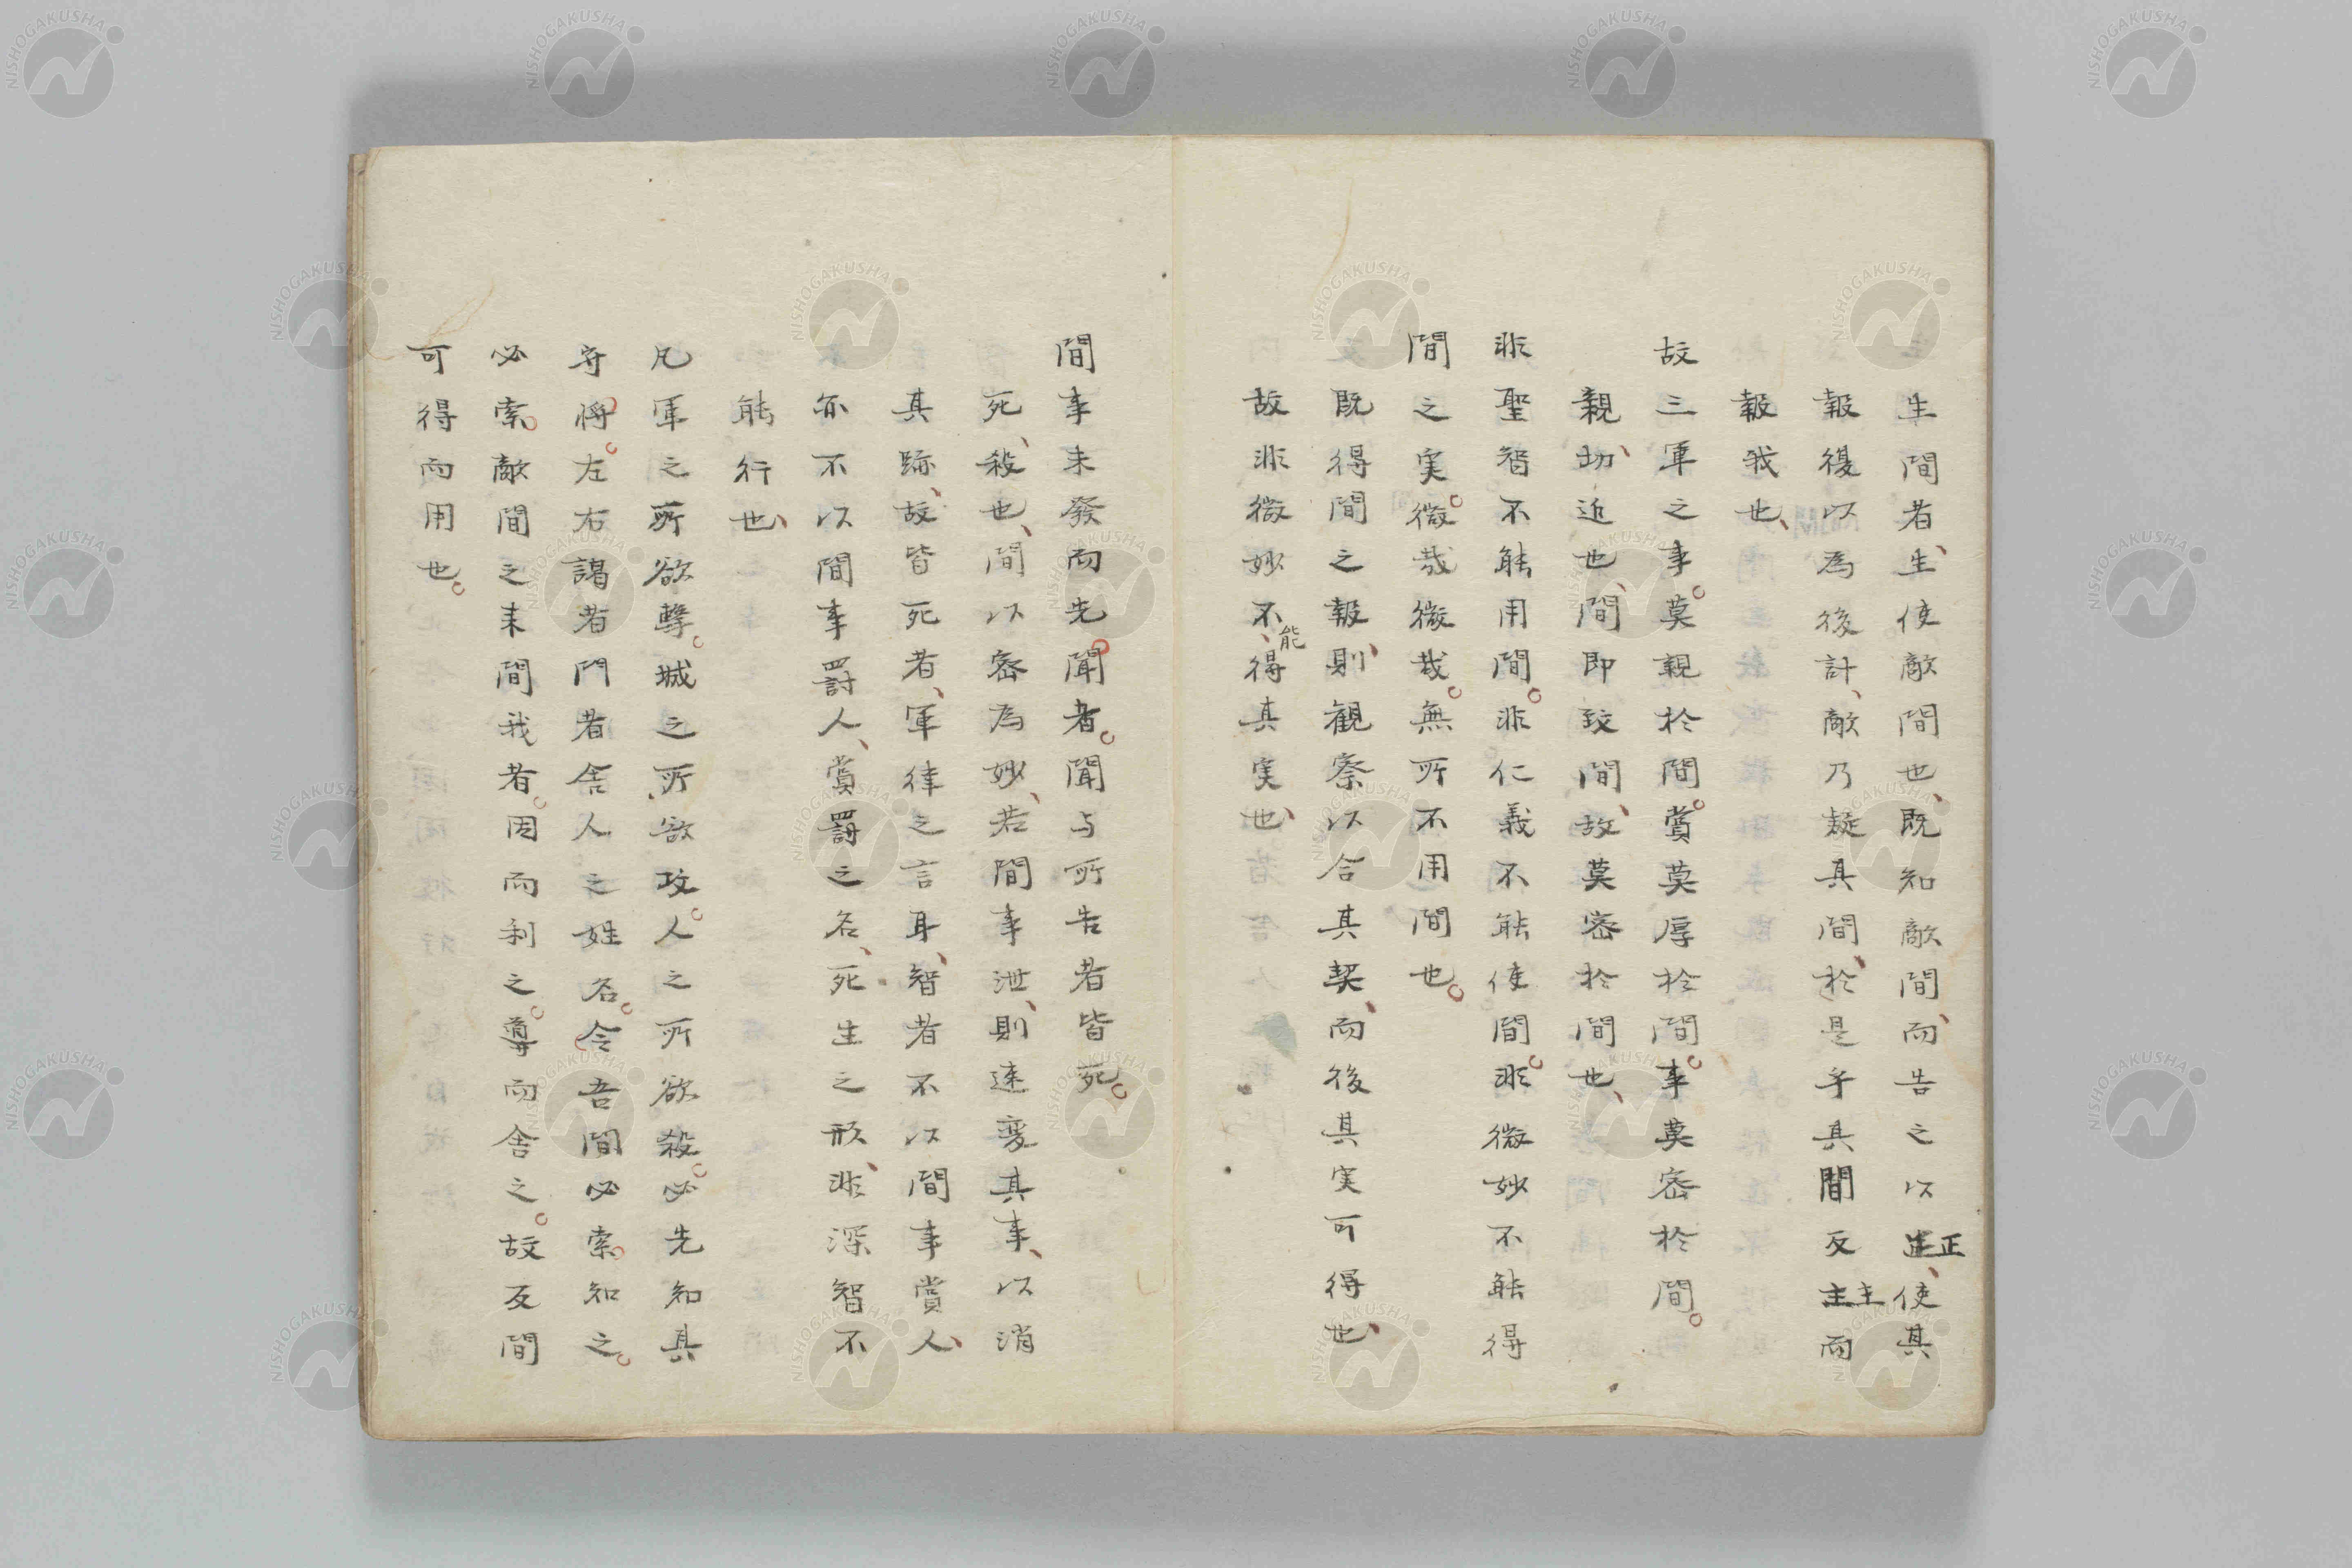 生間者、生使敵間也、既知敵間、而告之以正、使其
報復以為後計、敵乃疑其間、於是乎其間反主主而
報我也、
故三軍之事。莫親於間。賞莫厚於間。事莫密於間。
親、切近也、間即致間、故莫密於間也、
非聖智不能用間。非仁義不能使間。非微妙不能得
間之実。微哉微哉。無所不用間也。
既得間之報、則観察以合其契、而後其実可得也、
故非微妙不能、得其実也、
間事未發而先聞者。聞与所告者皆死。
死、殺也、間以密為妙、若間事泄、則速変其事、以消
其跡、故皆死者、軍律之言耳、智者不以間事賞人、
亦不以間事罰人、賞罰之名、死生之形、非深智不
能行也、
凡軍之所欲擊。城之所欲攻。人之所欲殺。必先知其
守將。左右謁者門者舍人之姓名。令吾間必索知之。
必索敵間之来間我者。因而利之。導而舍之。故反間
可得而用也。
NISHOGAKUSHA